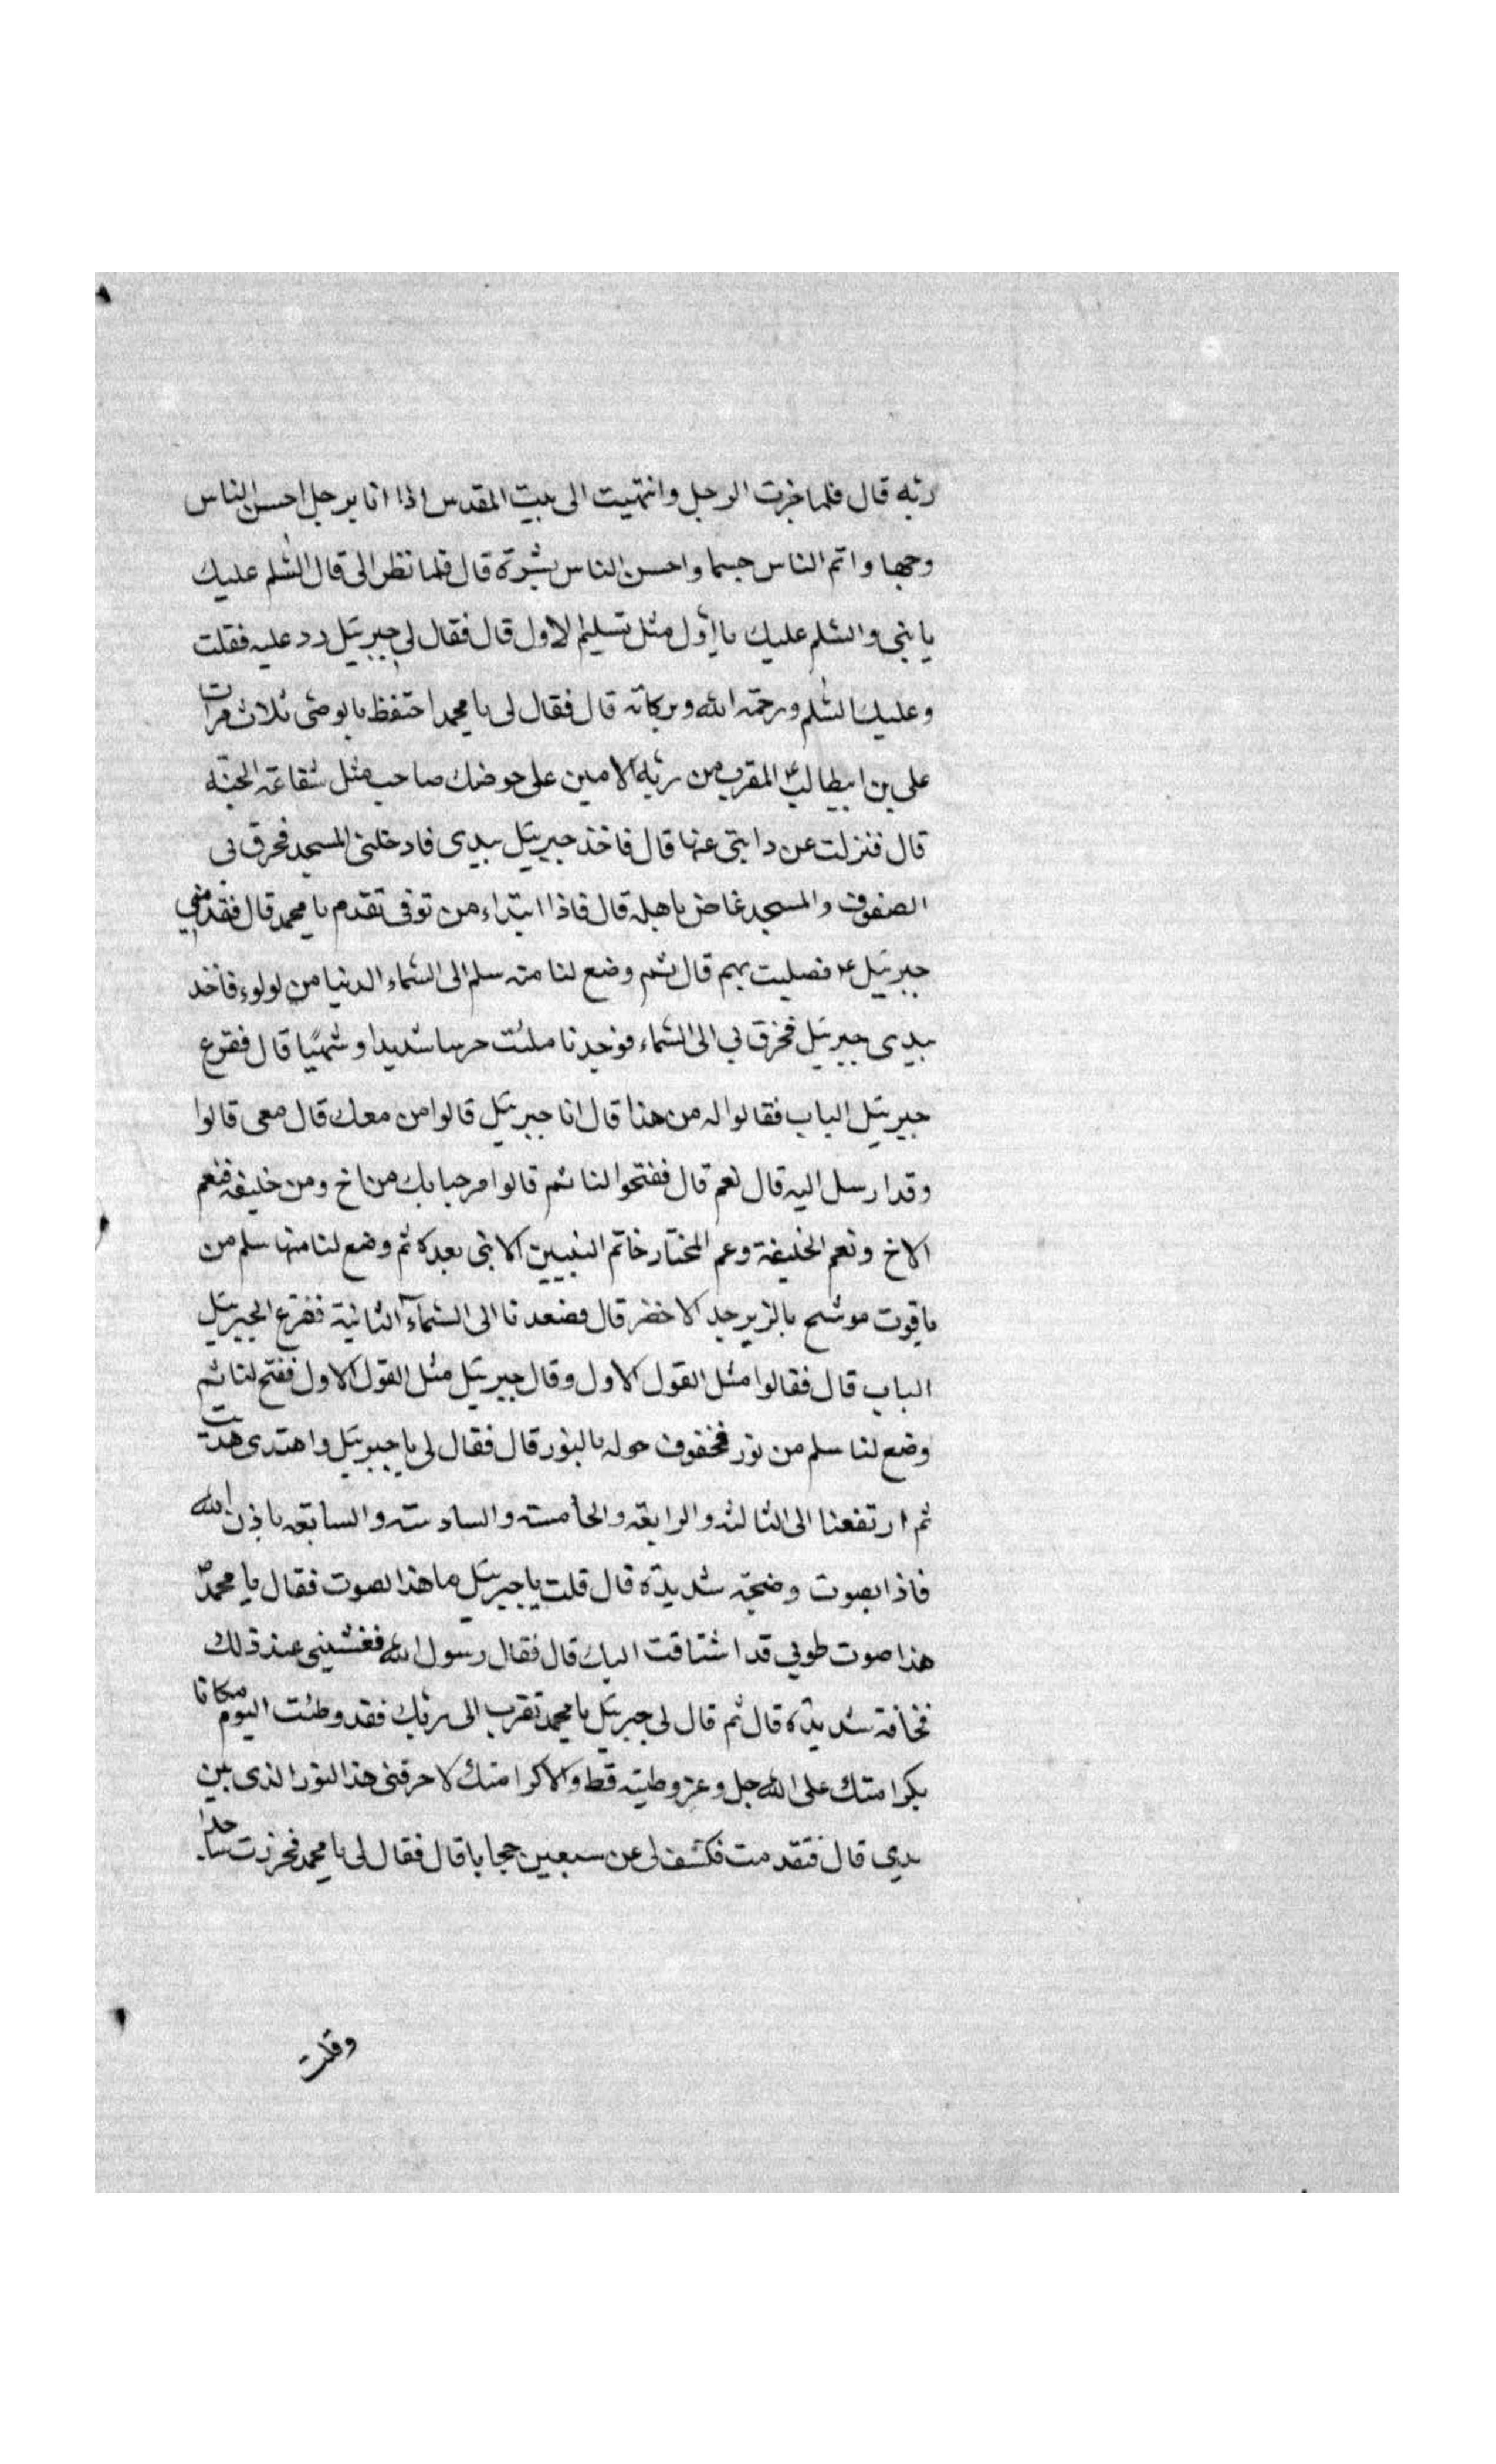 ربه قال فلما جزت الرجل وانتهيت الى بيت المقدس اذا انا برجل احسن الناس
وجها واتم الناس جسما واحسن الناس بشرة قال فلما نظر الى قال السلم عليك
يا نبى والسلم عليك يا اول مثل تسليم الاول قال فقال لى جبرئيل رد عليه فقلت
وعليك السلم ورحمة الله وبركاته قال فقال لى يا محمد احتفظ بالوصى ثلاث مرات
على بن ابيطالب المقرب من ربه الامين على حوضك صاحب مثل شفاعة الجنة
قال فنزلت عن دابتى عنها قال فاخذ جبرئيل بيدى فادخلنى المسجد فخرق بى
الصفوف والمسجد غاص باهله قال فاذا ابتداء من توفى تقدم يا محمد قال فقدمنى
جبرئيل ع فصليت بهم قال ثم وضع لنا منه سلم الى السماء الدنيا من لولوء فاخذ
بيدى جبرئيل فخرق بى الى السماء فوجدنا ملئت حرسا شديدا وشهبا قال فقرع
جبرئيل الباب فقالوا له من هذا قال انا جبرئيل قالوا من معك قال معى قالوا
وقد ارسل اليه قال نعم قال ففتحوا لنا ثم قالوا مرحبا بك من اخ ومن خليفة فنعم
الاخ ونعم الخليفة وعم المختار خاتم النبيين لا نبى بعده ثم وضع لنا منها سلم من
ياقوت موشح بالزبرجد الاخضر قال فصعدنا الى السماء الثانية فقرع الجبرئيل
الباب قال فقالوا مثل القول الاول وقال جبرئيل مثل القول الاول ففتح لنا ثم
وضع لنا سلم من نور فحفوف حوله بالنور قال فقال لى يا جبرئيل واهتدى هديت
ثم ارتفعنا الى الثالثة والرابعة والخامسة والسادسة والسابعة باذن الله
فاذا بصوت وضجة شديدة قال قلت يا جبرئيل ما هذا الصوت فقال يا محمد ص
هذا صوت طوبى قد اشتاقت اليك قال فقال رسول الله فغشينى عند ذلك
مخافة شديدة قال ثم قال لى جبرئيل يا محمد تقرب الى ربك فقد وطئت اليوم مكانا
بكرامتك على الله جل وعز وطيته قط ولا كرامتك لاحرقنى هذا النور الذى بين
يدى قال فتقدمت فكشف لى عن سبعين حجابا قال فقال لى يا محمد فخررت ساجدا
وقلت